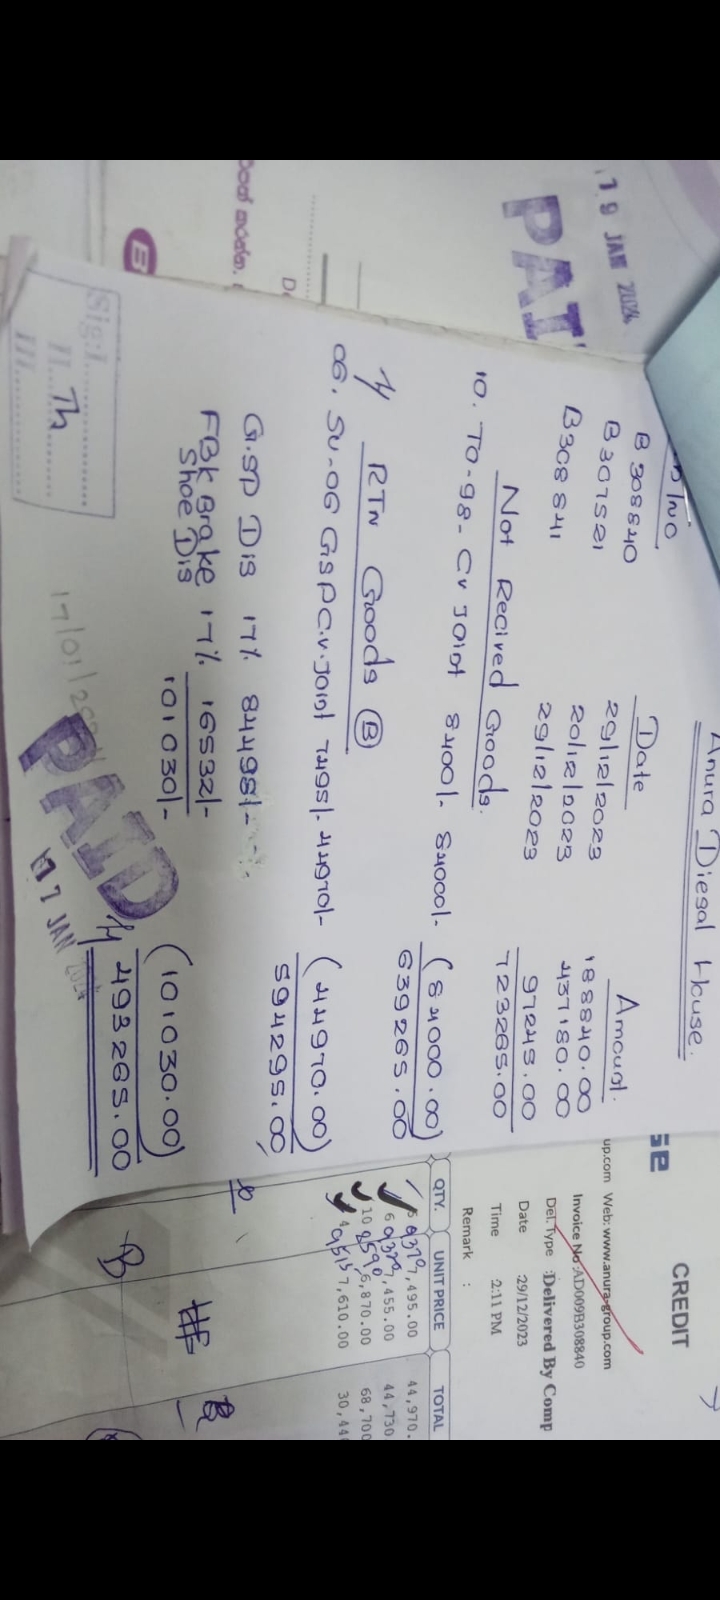 Anura Diesal House.
Date Amount.
B 308840 29/12/2023 188840.00
B 307521 20/12/2023 437180.00
B308841 29/12/2023 97245.00
723265.00
Not Recived Goods.
10. TO-98- CV JOINT 8400/- 84000/- (84000.00)
639265.00
RTN Goods (B)
06. SU-06 GSP C.V. JOINT 7495/- 44970/- (44970.00)
594295.00
G.SP DIS 17% 84498/-
FBK BRAKE 17% 16532/-
Shoe DIS
101030/- (101030.00)
493265.00
17/01/20
PAID
17 JAN 2024
Sig:I
II
III
19 JAN 2024
PAI
CREDIT
up.com Web: www.anura-group.com
Invoice No :AD009B308840
Del. Type :Delivered By Comp
Date 29/12/2023
Time 2:11 PM
Remark :
QTY. UNIT PRICE TOTAL
7,495.00 44,970.
6 7,455.00 44,730
10 8590 6,870.00 68,700
4 9515 7,610.00 30,44